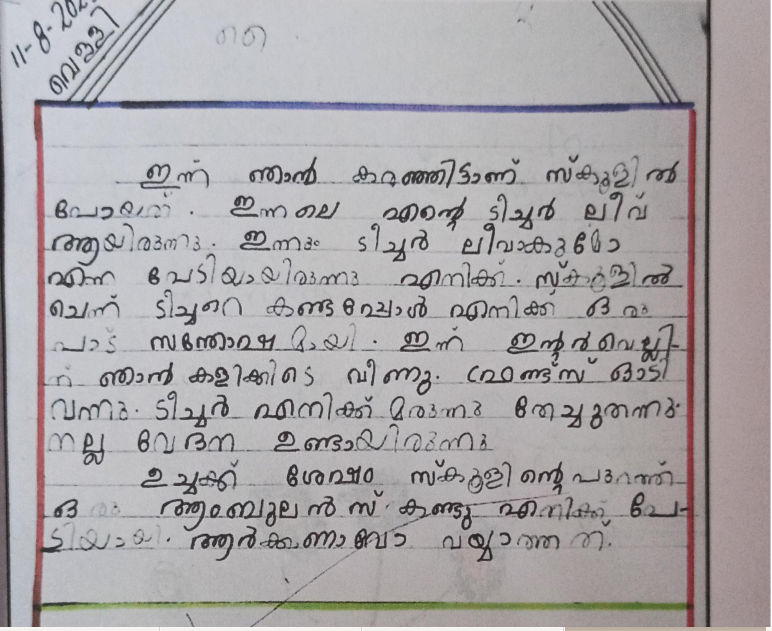 11-8-202
വെള്ളി
ഇന്ന് ഞാൻ കരഞ്ഞിട്ടാണ് സ്കൂളിൽ
പോയത്. ഇന്നലെ എന്റെ ടീച്ചർ ലീവ്
ആയിരുന്നു. ഇന്നും ടീച്ചർ ലീവാകുമോ
എന്ന പേടിയായിരുന്നു എനിക്ക്. സ്കൂളിൽ
ചെന്ന് ടീച്ചറെ കണ്ടപ്പോൾ എനിക്ക് ഒരു
പാട് സന്തോഷമായി. ഇന്ന് ഇന്റർവെല്ലി-
ന് ഞാൻ കളിക്കിടെ വീണു. ഫ്രണ്ട്സ് ഓടി
വന്നു. ടീച്ചർ എനിക്ക് മരുന്നു തേച്ചുതന്നു.
നല്ല വേദന ഉണ്ടായിരുന്നു
ഉച്ചക്ക് ശേഷം സ്കൂളിന്റെ പുറത്ത്
ഒരു ആംബുലൻസ് കണ്ടു എനിക്ക് പേ-
ടിയായി. ആർക്കണാവോ വയ്യാത്തത്.